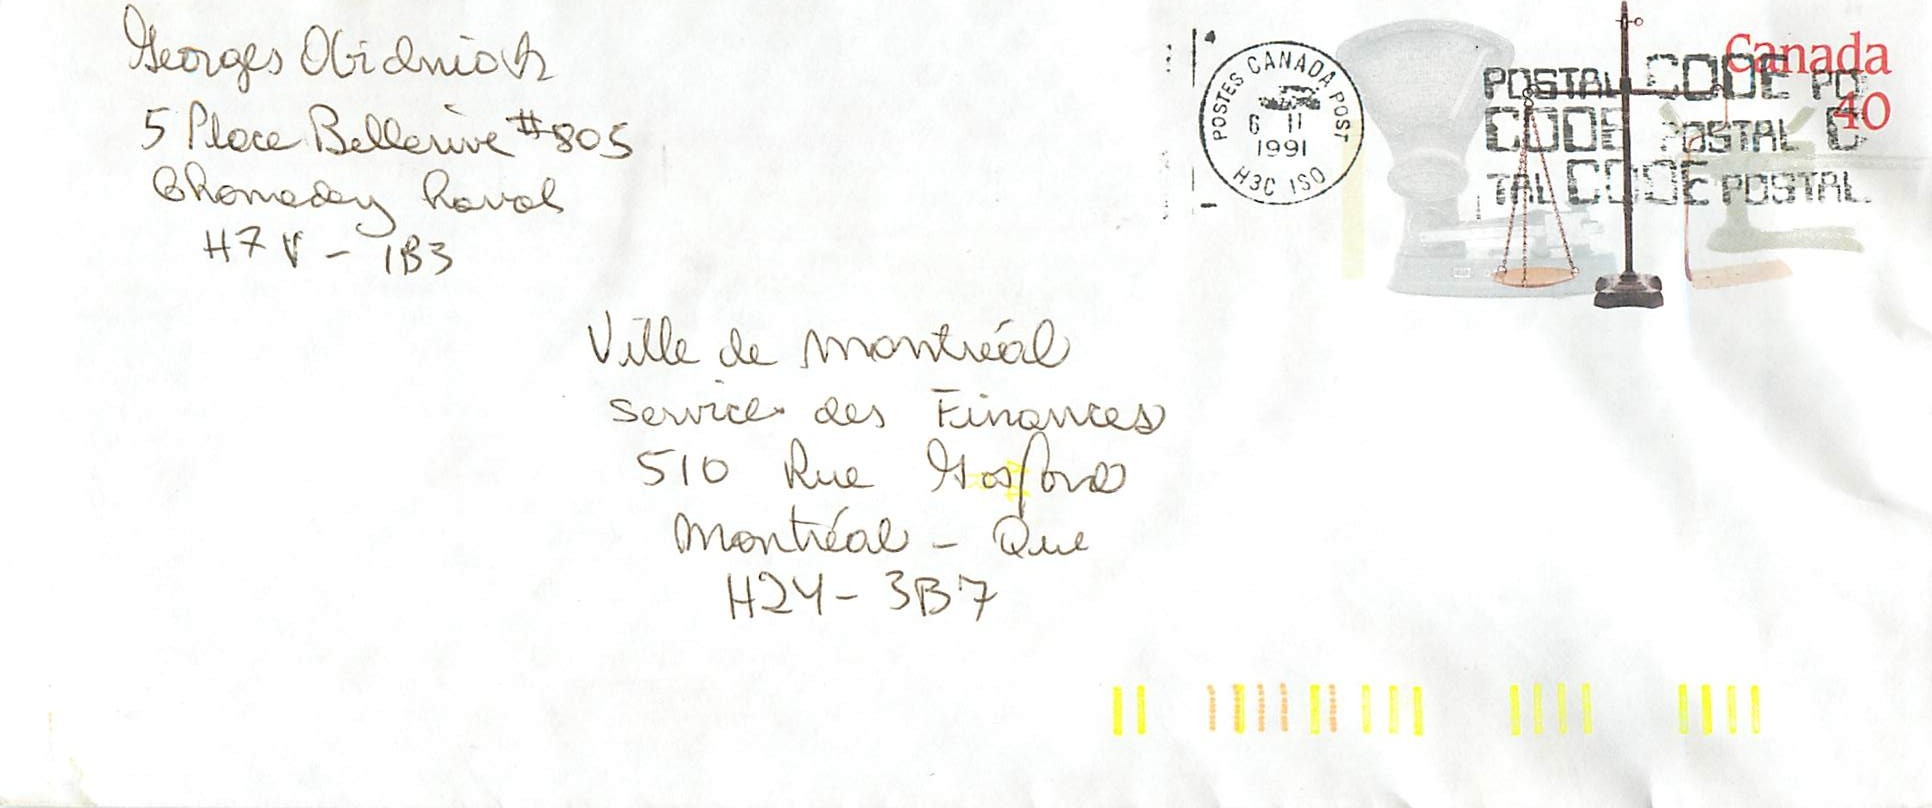 Georges
5 Place Bellerive #805
Chomedey Laval
H7V - 1B3
Ville de Montréal
Service des Finances
510 Rue Gosford
Montréal - Que
H2Y - 3B7
POSTES CANADA POST
6 II
1991
H3C ISO
Canada
40
POSTAL CODE PO
CODE POSTAL C
TAL CODE POSTAL